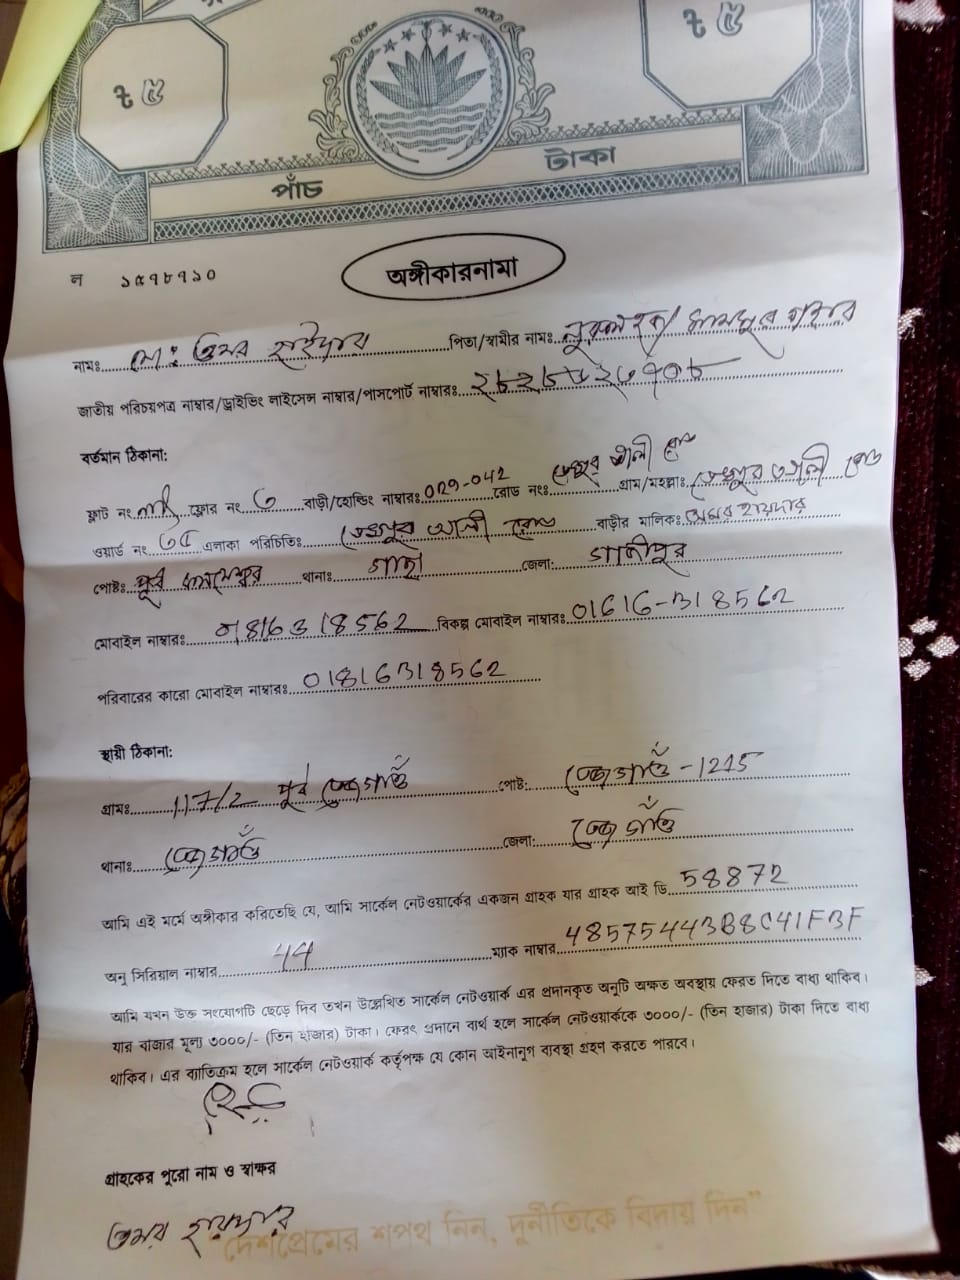 ৳ ৫ ৳ ৫
পাঁচ টাকা
ন ১৫৭৮৭১০
অঙ্গীকারনামা
নামঃ মো: ওমর হাইদার পিতা/স্বামীর নামঃ নুরুল হক/
জাতীয় পরিচয়পত্র নাম্বার/ড্রাইভিং লাইসেন্স নাম্বার/পাসপোর্ট নাম্বারঃ
বর্তমান ঠিকানা:
ফ্লাট নং ফ্লোর নং ৩ বাড়ী/হোল্ডিং নাম্বারঃ রোড নংঃ আলী রোড গ্রাম/মহল্লাঃ আলী রোড
ওয়ার্ড নং ৩৫ এলাকা পরিচিতিঃ আলী রোড বাড়ীর মালিকঃ ওমর হায়দার
পোষ্টঃ পূর্ব থানাঃ গাছা জেলা: গাজীপুর
মোবাইল নাম্বারঃ 01816318562 বিকল্প মোবাইল নাম্বারঃ 01616-318562
পরিবারের কারো মোবাইল নাম্বারঃ 01816318562
স্থায়ী ঠিকানা:
গ্রামঃ 117/2 পূর্ব তেজগাঁও পোষ্ট: তেজগাঁও - 1215
থানাঃ তেজগাঁও জেলা: তেজগাঁও
আমি এই মর্মে অঙ্গীকার করিতেছি যে, আমি সার্কেল নেটওয়ার্কের একজন গ্রাহক যার গ্রাহক আই ডি 58872
অনু সিরিয়াল নাম্বার 44 ম্যাক নাম্বার 48575443B8C41FBF
আমি যখন উক্ত সংযোগটি ছেড়ে দিব তখন উল্লেখিত সার্কেল নেটওয়ার্ক এর প্রদানকৃত অনুটি অক্ষত অবস্থায় ফেরত দিতে বাধ্য থাকিব।
যার বাজার মূল্য ৩০০০/- (তিন হাজার) টাকা। ফেরৎ প্রদানে ব্যর্থ হলে সার্কেল নেটওয়ার্ককে ৩০০০/- (তিন হাজার) টাকা দিতে বাধ্য
থাকিব। এর ব্যতিক্রম হলে সার্কেল নেটওয়ার্ক কর্তৃপক্ষ যে কোন আইনানুগ ব্যবস্থা গ্রহন করতে পারবে।
গ্রাহকের পুরো নাম ও স্বাক্ষর
ওমর হায়দার
"দেশপ্রেমের শপথ নিন, দুর্নীতিকে বিদায় দিন"